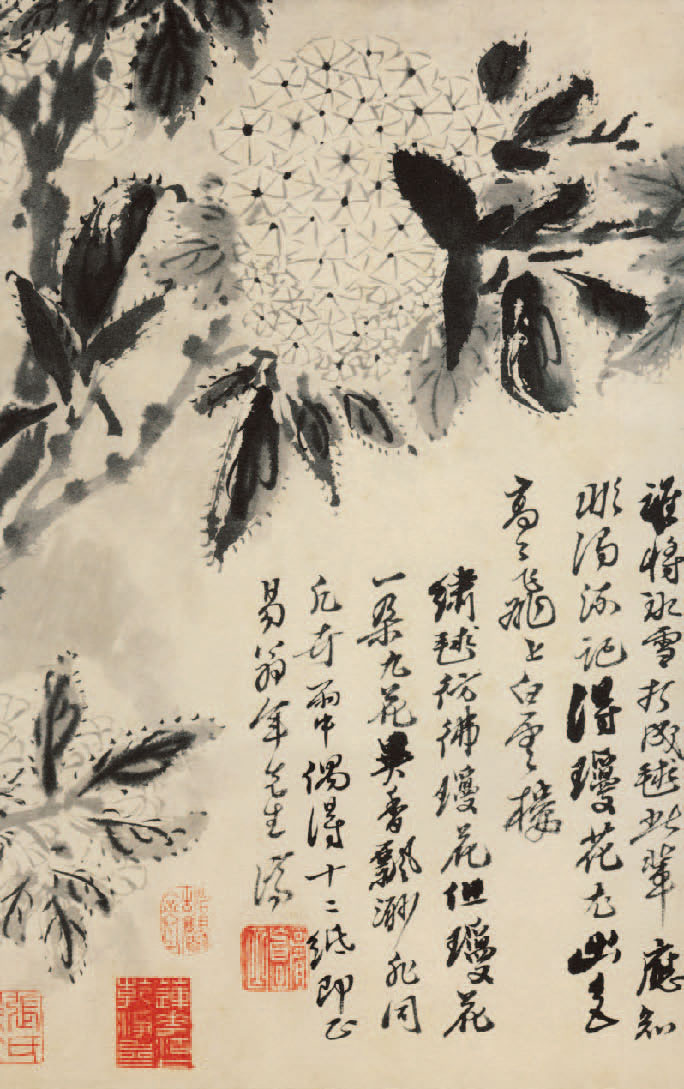 誰將冰雪打成毬此輩應知
濁流記得瓊花
高高飛上白雲樓
繡毬彷彿瓊花但瓊花
一朵九花異香飄渺非同
凡卉雨中偶得十二紙即正
易翁年先生 濟
張氏